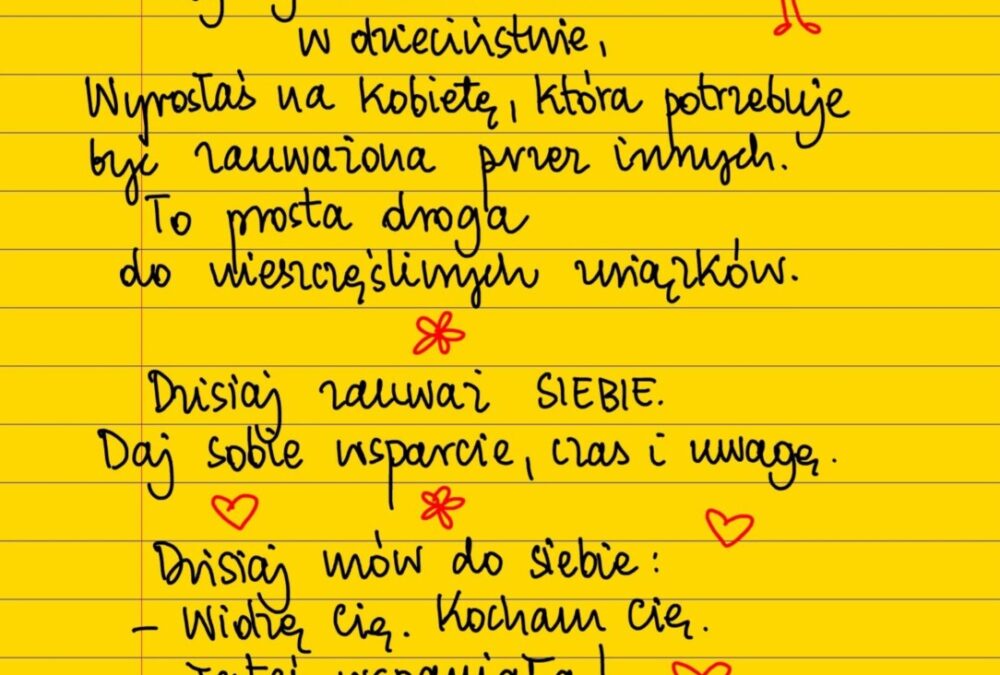 w dzieciństwie,
Wyrosłaś na kobietę, która potrzebuje
być zauważona przez innych.
To prosta droga
do nieszczęśliwych związków.
Dzisiaj zauważ SIEBIE.
Daj sobie wsparcie, czas i uwagę.
Dzisiaj mów do siebie:
- Widzę Cię. Kocham Cię.
Jesteś wspaniała!